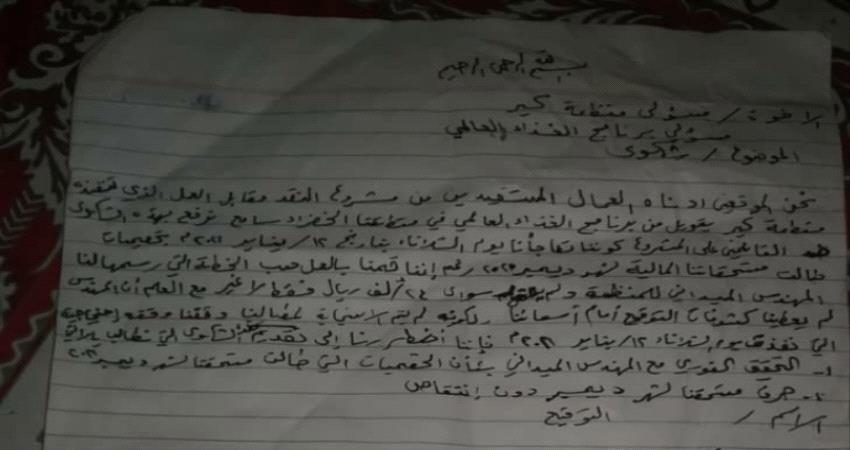 بسم الله الرحمن الرحيم
الاخوة / مسؤلي منظمة كير
مسؤلي برنامج الغذاء العالمي
الموضوع / شكوى
نحن الموقعين ادناه العمال المستفيدين من مشروع النقد مقابل العمل الذي تنفذه
منظمة كير بتمويل من برنامج الغذاء العالمي في منطقتنا نرفع بهذه الشكوى
ضد القائمين على المشروع كوننا تفاجأنا يوم الثلاثاء بتاريخ ١٢/يناير ٢٠٢١م بخصميات
طالت مستحقاتنا المالية لشهر ديسمبر ٢٠٢٠م رغم إننا قمنا بالعمل حسب الخطة التي رسمها لنا
المهندس الميداني للمنظمة ولم سوى ٢٤/ألف ريال فقط لا غير مع العلم أن المهندس
لم يعطينا كشوفات التوقيع أمام أسمائنا ولكونه لم يتم الاستجابة لمطالبنا وقفتنا وقفة إحتجاجية
التي نفذت يوم الثلاثاء ١٢/يناير ٢٠٢١م فإننا أضطررنا إلى تقديم الشكوى التي نطالب بالآتي
١- التحقق الفوري مع المهندس الميداني بشأن الخصميات التي طالت مستحقنا لشهر ديسمبر ٢٠٢٠
٢- صرف مستحقنا لشهر ديسمبر دون إنتقاص
الاسم / التوقيع